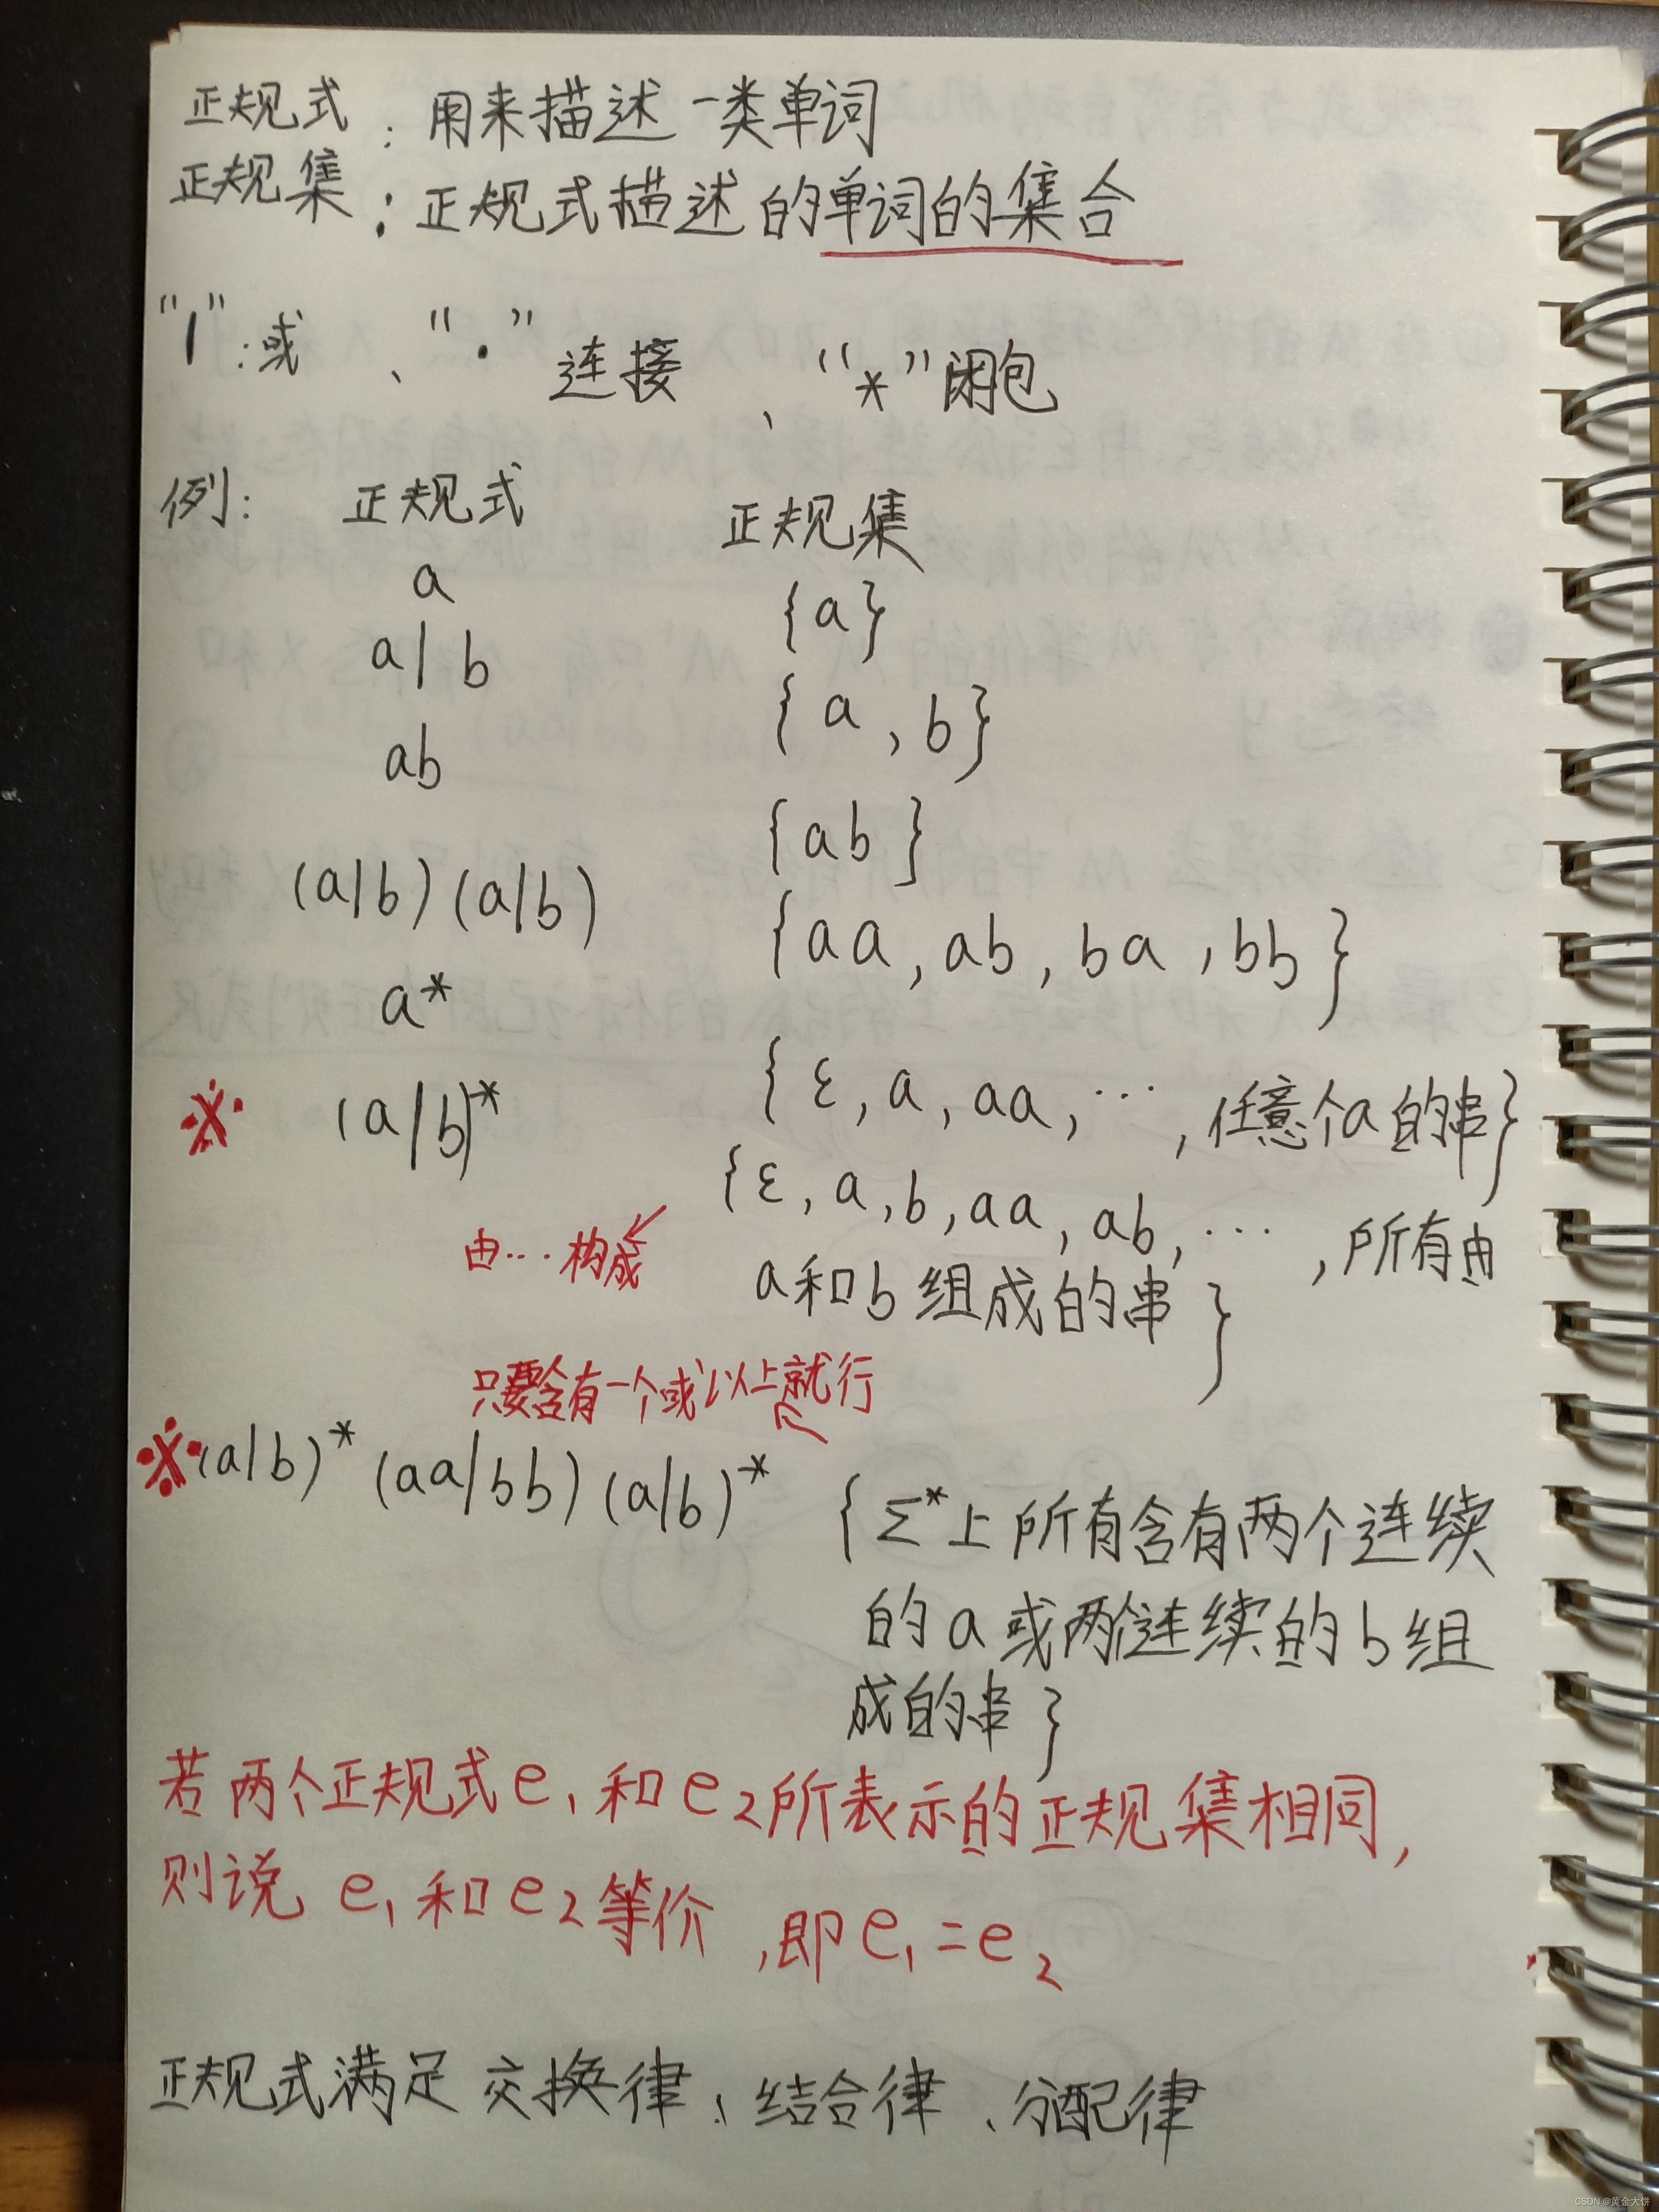 正规式：用来描述一类单词
正规集：正规式描述的单词的集合
“|”:或、“·”连接、“*”闭包
例: 正规式 正规集
a {a}
a|b {a,b}
ab {ab}
(a|b)(a|b) {aa,ab,ba,bb}
a* {ε,a,aa,…,任意个a的串}
※ (a|b)* {ε,a,b,aa,ab,…,所有由
由…构成 a和b组成的串}
只要含有一个或以上就行
※(a|b)*(aa|bb)(a|b)* {Σ*上所有含有两个连续
的a或两个连续的b组
成的串}
若两个正规式e₁和e₂所表示的正规集相同,
则说e₁和e₂等价,即e₁=e₂
正规式满足交换律、结合律、分配律
CSDN @黄金大饼